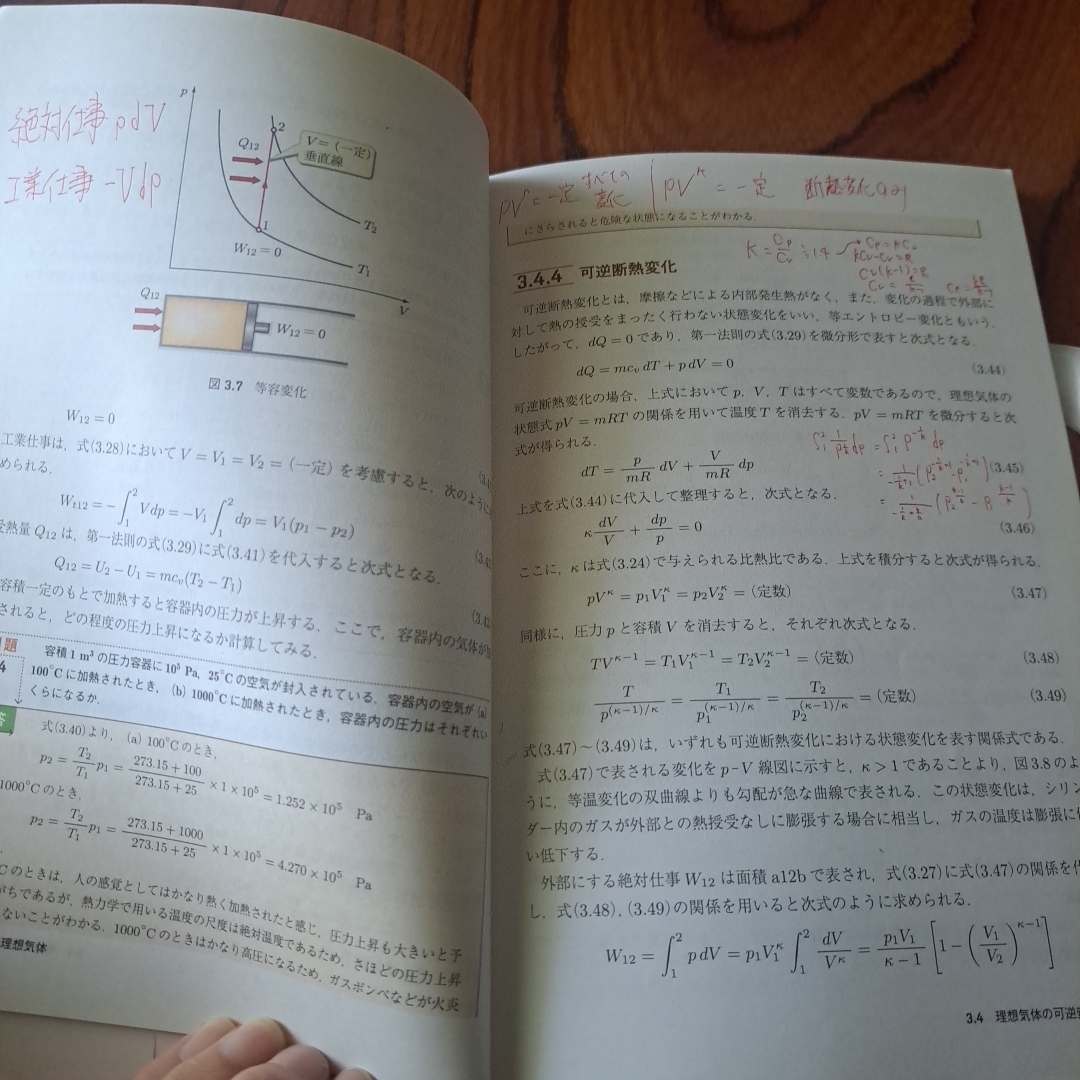 絶対仕事 pdV
工業仕事 -Vdp
p
2
Q12
V=(一定)
垂直線
1
T2
W12=0
T1
V
Q12
W12=0
図3.7 等容変化
W12=0
工業仕事は，式(3.28)において V=V1=V2=(一定) を考慮すると，次のように
められる．
Wt12=-∫₁²Vdp=-V1∫₁²dp=V1(p1-p2)
受熱量 Q12 は，第一法則の式(3.29)に式(3.41)を代入すると次式となる．
Q12=U2-U1=mcv(T2-T1)
容積一定のもとで加熱すると容器内の圧力が上昇する．ここで，容器内の気体が
されると，どの程度の圧力上昇になるか計算してみる．
題
4
容積 1 m³ の圧力容器に 10⁵ Pa, 25°C の空気が封入されている．容器内の空気が (a)
100°C に加熱されたとき，(b) 1000°C に加熱されたとき，容器内の圧力はそれぞれい
くらになるか．
答
式(3.40)より，(a) 100°C のとき，
p2=T2/T1 p1=(273.15+100)/(273.15+25)×1×10⁵=1.252×10⁵ Pa
1000°C のとき，
p2=T2/T1 p1=(273.15+1000)/(273.15+25)×1×10⁵=4.270×10⁵ Pa
Cのときは，人の感覚としてはかなり熱く加熱されたと感じ，圧力上昇も大きいと予
がちであるが，熱力学で用いる温度の尺度は絶対温度であるため，さほどの圧力上昇
ないことがわかる．1000°C のときはかなり高圧になるため，ガスボンベなどが火炎
理想気体
pV=一定 すべての変化 pV^κ=一定 断熱変化のみ
にさらされると危険な状態になることがわかる．
κ=Cp/Cv≒1.4 Cp=κCv
κCv-Cv=R
Cv(κ-1)=R
3.4.4 可逆断熱変化
可逆断熱変化とは，摩擦などによる内部発生熱がなく，また，変化の過程で外部に
対して熱の授受をまったく行わない状態変化をいい，等エントロピー変化ともいう．
したがって，dQ=0 であり，第一法則の式(3.29)を微分形で表すと次式となる．
dQ=mcv dT+p dV=0 (3.44)
可逆断熱変化の場合，上式において p, V, T はすべて変数であるので，理想気体の
状態式 pV=mRT の関係を用いて温度 T を消去する．pV=mRT を微分すると次
式が得られる．
dT=p/mR dV+V/mR dp (3.45)
上式を式(3.44)に代入して整理すると，次式となる．
κ dV/V+dp/p=0 (3.46)
ここに，κ は式(3.24)で与えられる比熱比である．上式を積分すると次式が得られる．
pV^κ=p1V1^κ=p2V2^κ=(定数) (3.47)
同様に，圧力 p と容積 V を消去すると，それぞれ次式となる．
TV^(κ-1)=T1V1^(κ-1)=T2V2^(κ-1)=(定数) (3.48)
T/p^((κ-1)/κ)=T1/p1^((κ-1)/κ)=T2/p2^((κ-1)/κ)=(定数) (3.49)
式(3.47)～(3.49)は，いずれも可逆断熱変化における状態変化を表す関係式である．
式(3.47)で表される変化を p-V 線図に示すと，κ>1 であることより，図3.8のよ
うに，等温変化の双曲線よりも勾配が急な曲線で表される．この状態変化は，シリン
ダー内のガスが外部との熱授受なしに膨張する場合に相当し，ガスの温度は膨張に
い低下する．
外部にする絶対仕事 W12 は面積 a12b で表され，式(3.27)に式(3.47)の関係を代
し，式(3.48)，(3.49)の関係を用いると次式のように求められる．
W12=∫₁² p dV=p1V1^κ∫₁² dV/V^κ=p1V1/(κ-1)[1-(V1/V2)^(κ-1)]
3.4 理想気体の可逆